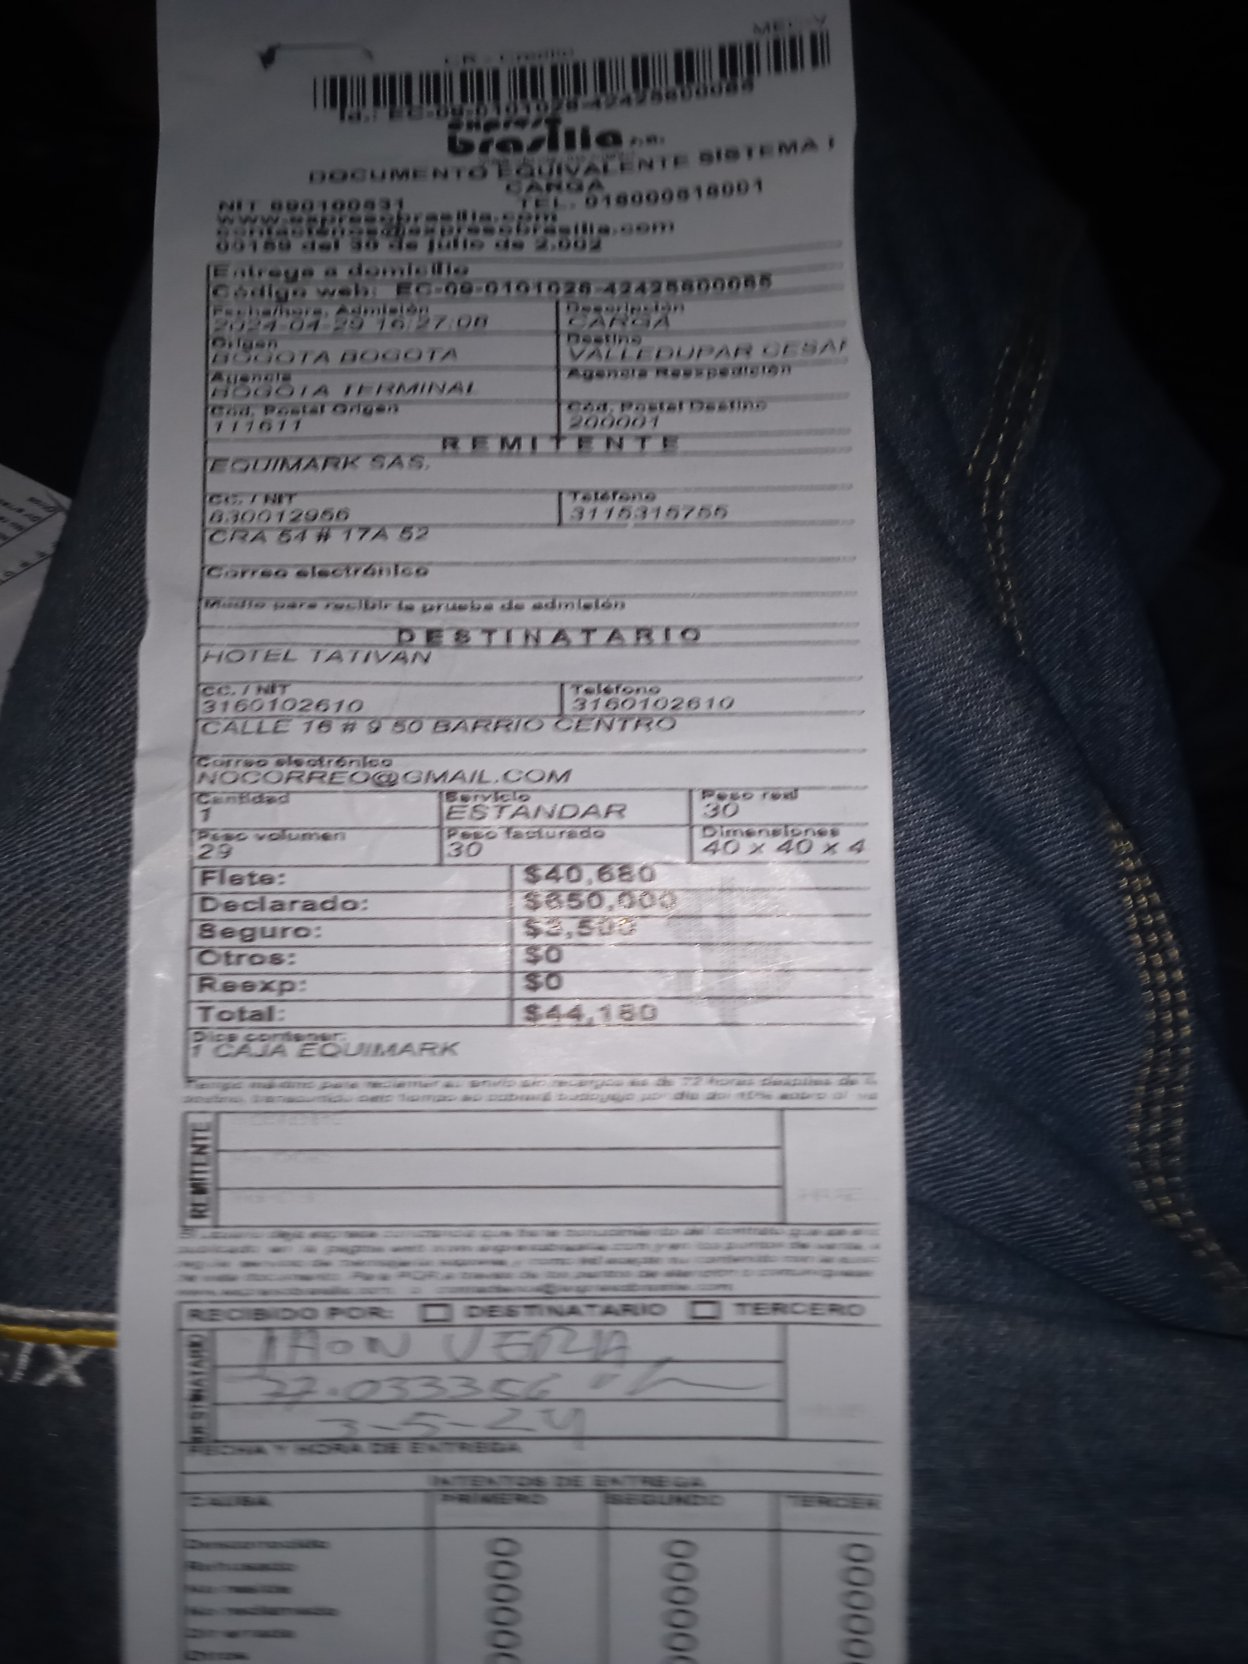 MEC-V
CR - Credito
Id.: EC-09-0101028-42425800065
expreso
brasilia s.a.
DOCUMENTO EQUIVALENTE SISTEMA
CARGA
NIT 890100531 TEL. 018000518001
www.expresobrasilia.com
contactenos@expresobrasilia.com
00189 del 30 de julio de 2.002
Entrega a domicilio
Código web: EC-09-0101028-42425800065
Fecha/hora, Admisión Descripción
2024-04-29 16:27:08 CARGA
Origen Destino
BOGOTA BOGOTA VALLEDUPAR CESAR
Agencia Agencia Reexpedición
BOGOTA TERMINAL
Cód. Postal Origen Cód. Postal Destino
111611 200001
REMITENTE
EQUIMARK SAS.
CC. / NIT Teléfono
830012956 3115315755
CRA 54 # 17A 52
Correo electrónico
Medio para recibir la prueba de admisión
DESTINATARIO
HOTEL TATIVAN
CC. / NIT Teléfono
3160102610 3160102610
CALLE 16 # 9 50 BARRIO CENTRO
Correo electrónico
NOCORREO@GMAIL.COM
Cantidad Servicio Peso real
1 ESTANDAR 30
Peso volumen Peso facturado Dimensiones
29 30 40 x 40 x 4
Flete: $40,680
Declarado: $650,000
Seguro: $3,500
Otros: $0
Reexp: $0
Total: $44,180
Dice contener:
1 CAJA EQUIMARK
Tiempo máximo para reclamar su envío sin recargos es de 72 horas después de
destino, transcurrido este tiempo se cobrará bodegaje por día del 10% sobre el
REMITENTE
RECIBIDO POR: DESTINATARIO TERCERO
DESTINATARIO
VERA
3-5-24
FECHA Y HORA DE ENTREGA
INTENTOS DE ENTREGA
CAUSA PRIMERO SEGUNDO TERCER
Desconocido
Rehusado
No reside
No reclamado
Dir errada
Otros